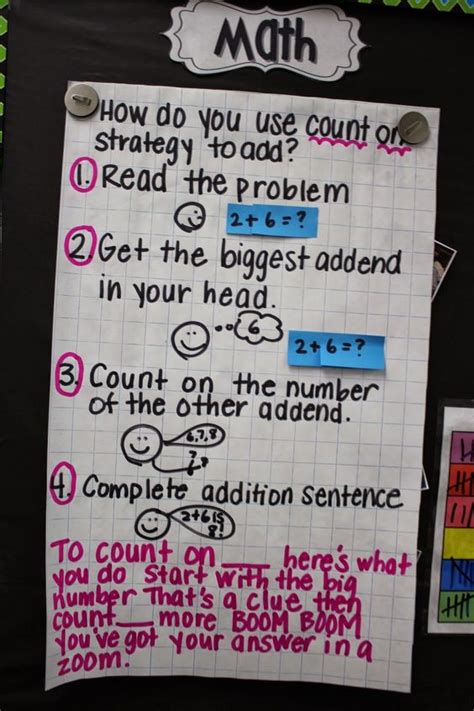 Math
How do you use count on
strategy to add?
1. Read the problem
2+6=?
2. Get the biggest addend
in your head.
6
2+6=?
3. Count on the number
of the other addend.
6,7,8
7 8
4. Complete addition sentence
2+6 is
8!
To count on ___ here's what
you do start with the big
number That's a clue then
count ___ more BOOM BOOM
You've got your answer in a
zoom.